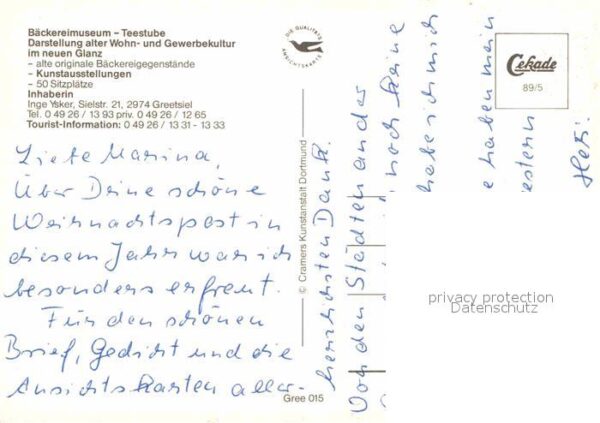 Bäckereimuseum – Teestube
Darstellung alter Wohn- und Gewerbekultur
im neuen Glanz
– alte originale Bäckereigegenstände
– Kunstausstellungen
– 50 Sitzplätze
Inhaberin
Inge Ysker, Sielstr. 21, 2974 Greetsiel
Tel. 0 49 26 / 13 93 priv. 0 49 26 / 12 65
Tourist-Information: 0 49 26 / 13 31 - 13 33
DIE QUALITÄTS
ANSICHTSKARTE
Cekade
89/5
Liebe Marina,
Über Deine schöne
Weihnachtspost in
diesem Jahr war ich
besonders erfreut.
Für den schönen
Brief, Gedicht und die
Ansichtskarten aller-
herzlichsten Dank.
Von den Städten an der
noch keine
habe ich mich
e haben mein
estern
© Cramers Kunstanstalt Dortmund
Gree 015
privacy protection
Datenschutz